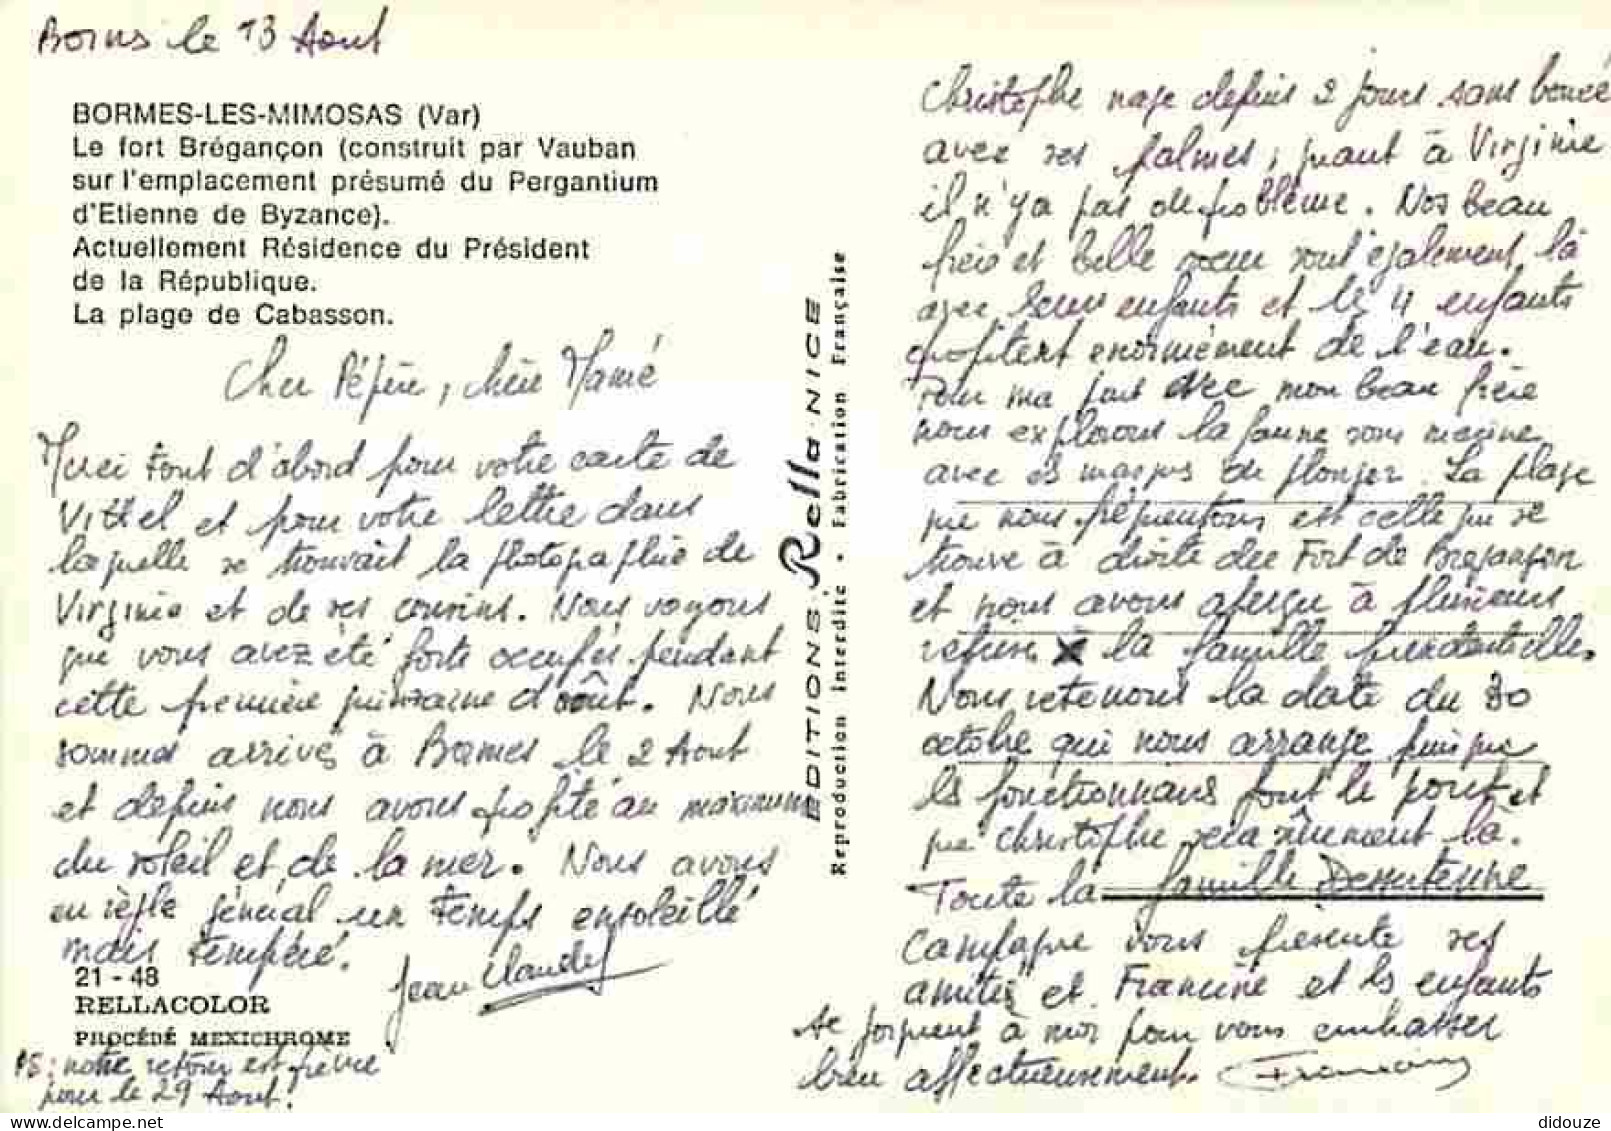 Borms le 13 Aout
BORMES-LES-MIMOSAS (Var)
Le fort Brégançon (construit par Vauban
sur l'emplacement présumé du Pergantium
d'Etienne de Byzance).
Actuellement Résidence du Président
de la République.
La plage de Cabasson.
Cher Pépère, chère Mamé
Merci tout d'abord pour votre carte de
Vittel et pour votre lettre dans
laquelle se trouvait la photographie de
Virginie et de ses cousins. Nous voyons
que vous avez été forts occupés pendant
cette première quinzaine d'août. Nous
sommes arrivés à Bormes le 2 Aout
et depuis nous avons profité au maximum
du soleil et de la mer. Nous avons
en règle général un temps ensoleillé
mais tempéré.
Jean Claude
21 - 48
RELLACOLOR
PROCÉDÉ MEXICHROME
PS: notre retour est prévu
pour le 29 Aout.
EDITIONS Rella - NICE
Reproduction Interdite • Fabrication Française
Christophe nage depuis 2 jours sans bouée
avec ses palmes, quant à Virginie
il n'y a pas de problème. Nos beau
frère et belle soeur sont également là
avec leurs enfants et les 4 enfants
profitent enormément de l'eau.
Pour ma part avec mon beau frère
nous explorons la faune sous marine
avec es masques de plonger. La plage
que nous fréquentons est celle qui se
trouve à droite du Fort de Bregançon
et nous avons aperçu à plusieurs
reprises la famille presidentielle.
Nous retenons la date du 30
octobre qui nous arrange puisque
les fonctionnaires font le pont et
que Christophe sera sûrement là.
Toute la famille
campagne vous présente ses
amitiés et Francine et les enfants
se joignent à moi pour vous embrasser
bien affectueusement. Francine
didouze